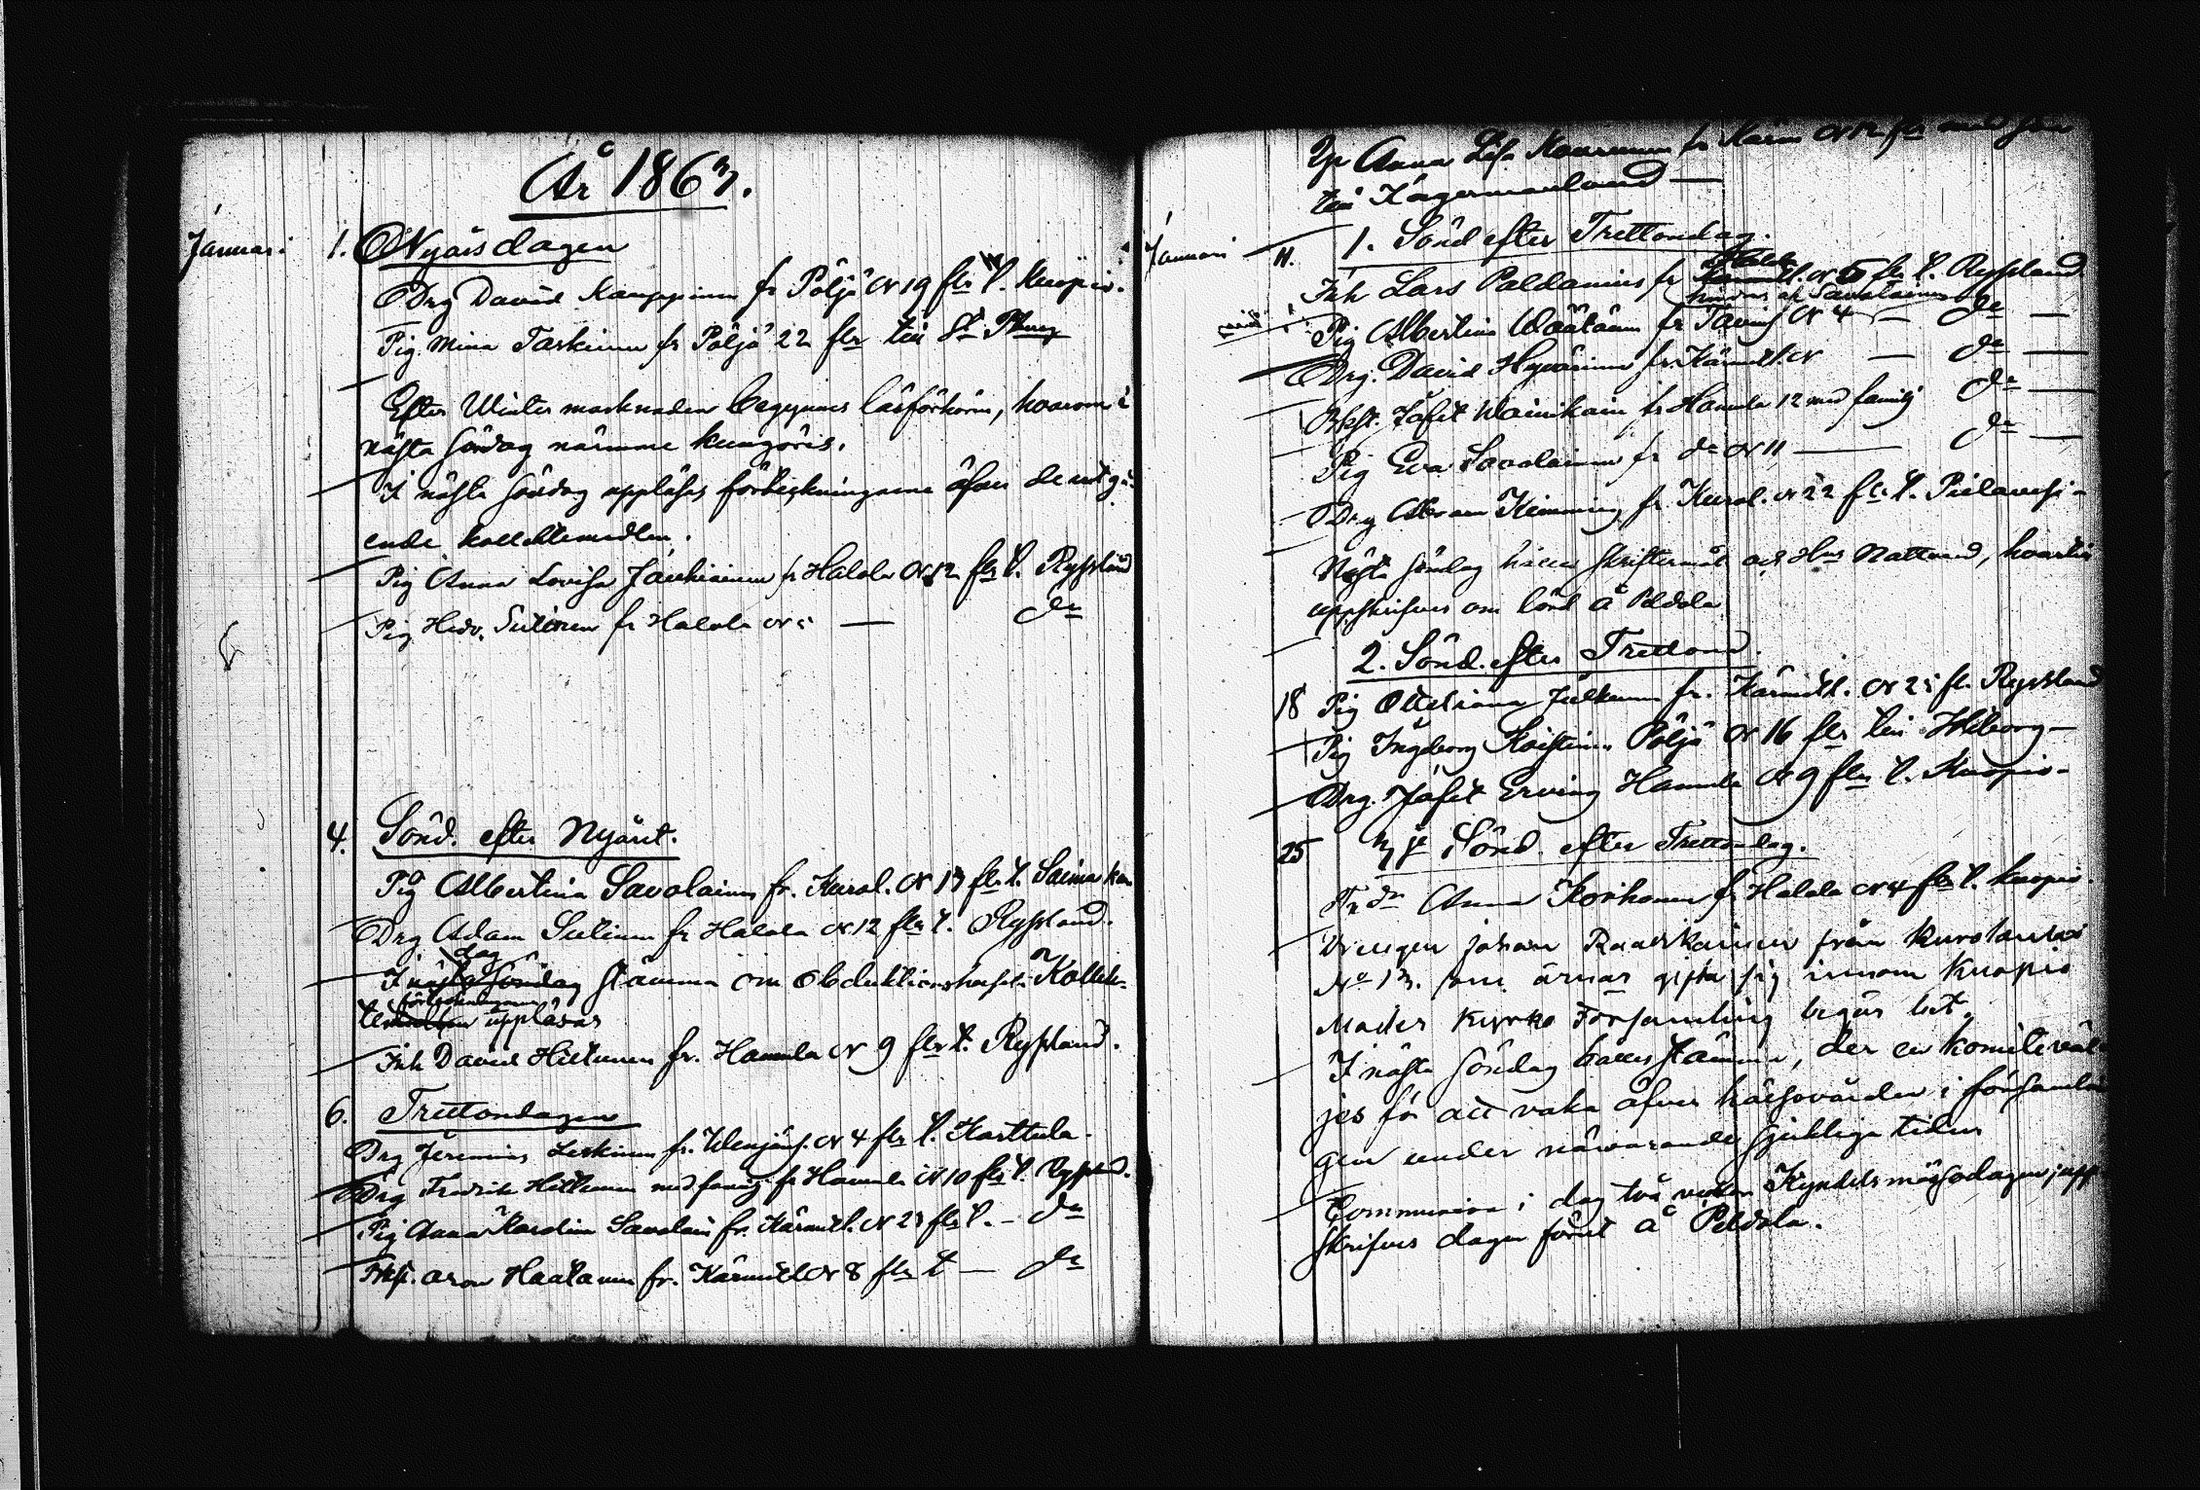 År 1863.
Januari 1. Nyårsdagen
Drg David Kauppinen fr Pöljä N 19 flr t. Kuopio.
Pig. Mina Taskinen fr Pöljä 22 flr till St Pburg
Efter Winter marknaden begynnes läsförhören, hvarom i
nästa söndag närmare kungöres.
I nästa söndag uppläses förteckningarne öfver de utgå-
ende kollektmedlen.
Pig Anna Lovisa fr Halola N 12 flr t. Ryssland
Pig Hedv. Sutinen fr Halola N 5 — do
4. Sönd. efter Nyåret.
Pig Albertina Savolainen fr. Kurol. N 13 flr t. Saima kan
Drg Adam Sutinen fr Halola N 12 flr t. Ryssland.
dag
I nästa söndag stämma om Obduktionshuset. Kollek-
förteckningarne
te upplåsas
Inh David Hiltunen fr. Hamula N 9 flr t. Ryssland.
6. Trettondagen
Drg Jeremias Leskinen fr. N 4 flr t. Karttula.
Drg Fredrik Hiltunen med familj fr Hamula N 10 flr t. Ryssland.
Pig Anna Karolina Savolain fr. Kärmel. N 23 flr t. — do
Aron Haatanen fr. Kärmel N 8 flr t — do
Anna Lisa fr N 12 flr med son
till
Januari 11. 1. Sönd efter Trettondag.
Inh Lars Paldanius fr N 5 flr t. Ryssland
Savolainen
Pig Albertina Väätäin fr N 4 — do —
Drg. David Hyvärinen fr. Kärmel. N — do —
Jafet Wainikain fr Hamula 12 med familj do —
Pig Eva Savolainen fr do N 11 — do —
Drg Abram Kemming fr. Kurol. N 22 flr. t. Pielavesi-
Nästa söndag hålles skriftermål och Hrs Nattvard, hvartill
uppskrifves om lörd å Peldola
2. Sönd. efter Trettond.
18 Pig fr. Kärmel. N 25 fl. Ryssland
Pig Ingeborg Pöljä N 16 flr till Wiborg—
Drg. Jafet Erving Hamula N 9 flr t. Kuopio-
25 3je Sönd. efter Trettondag.
Anna Korhonen fr Halola N 4 flr t. Kuopio.
Drengen Johan Raatikainen från Kurolanlax
No 13. som ärnar gifta sig innom Kuopio
Moder Kyrko Församling begär bet.
I nästa söndag hålles stämma, der en komité väl-
jes för att vaka öfver hälsovården i församlin
gen under närvarande sjukliga tider
Communion i dag två veckor Kyndelsmässodagen, upp
skrifves dagen förut å Peldola.